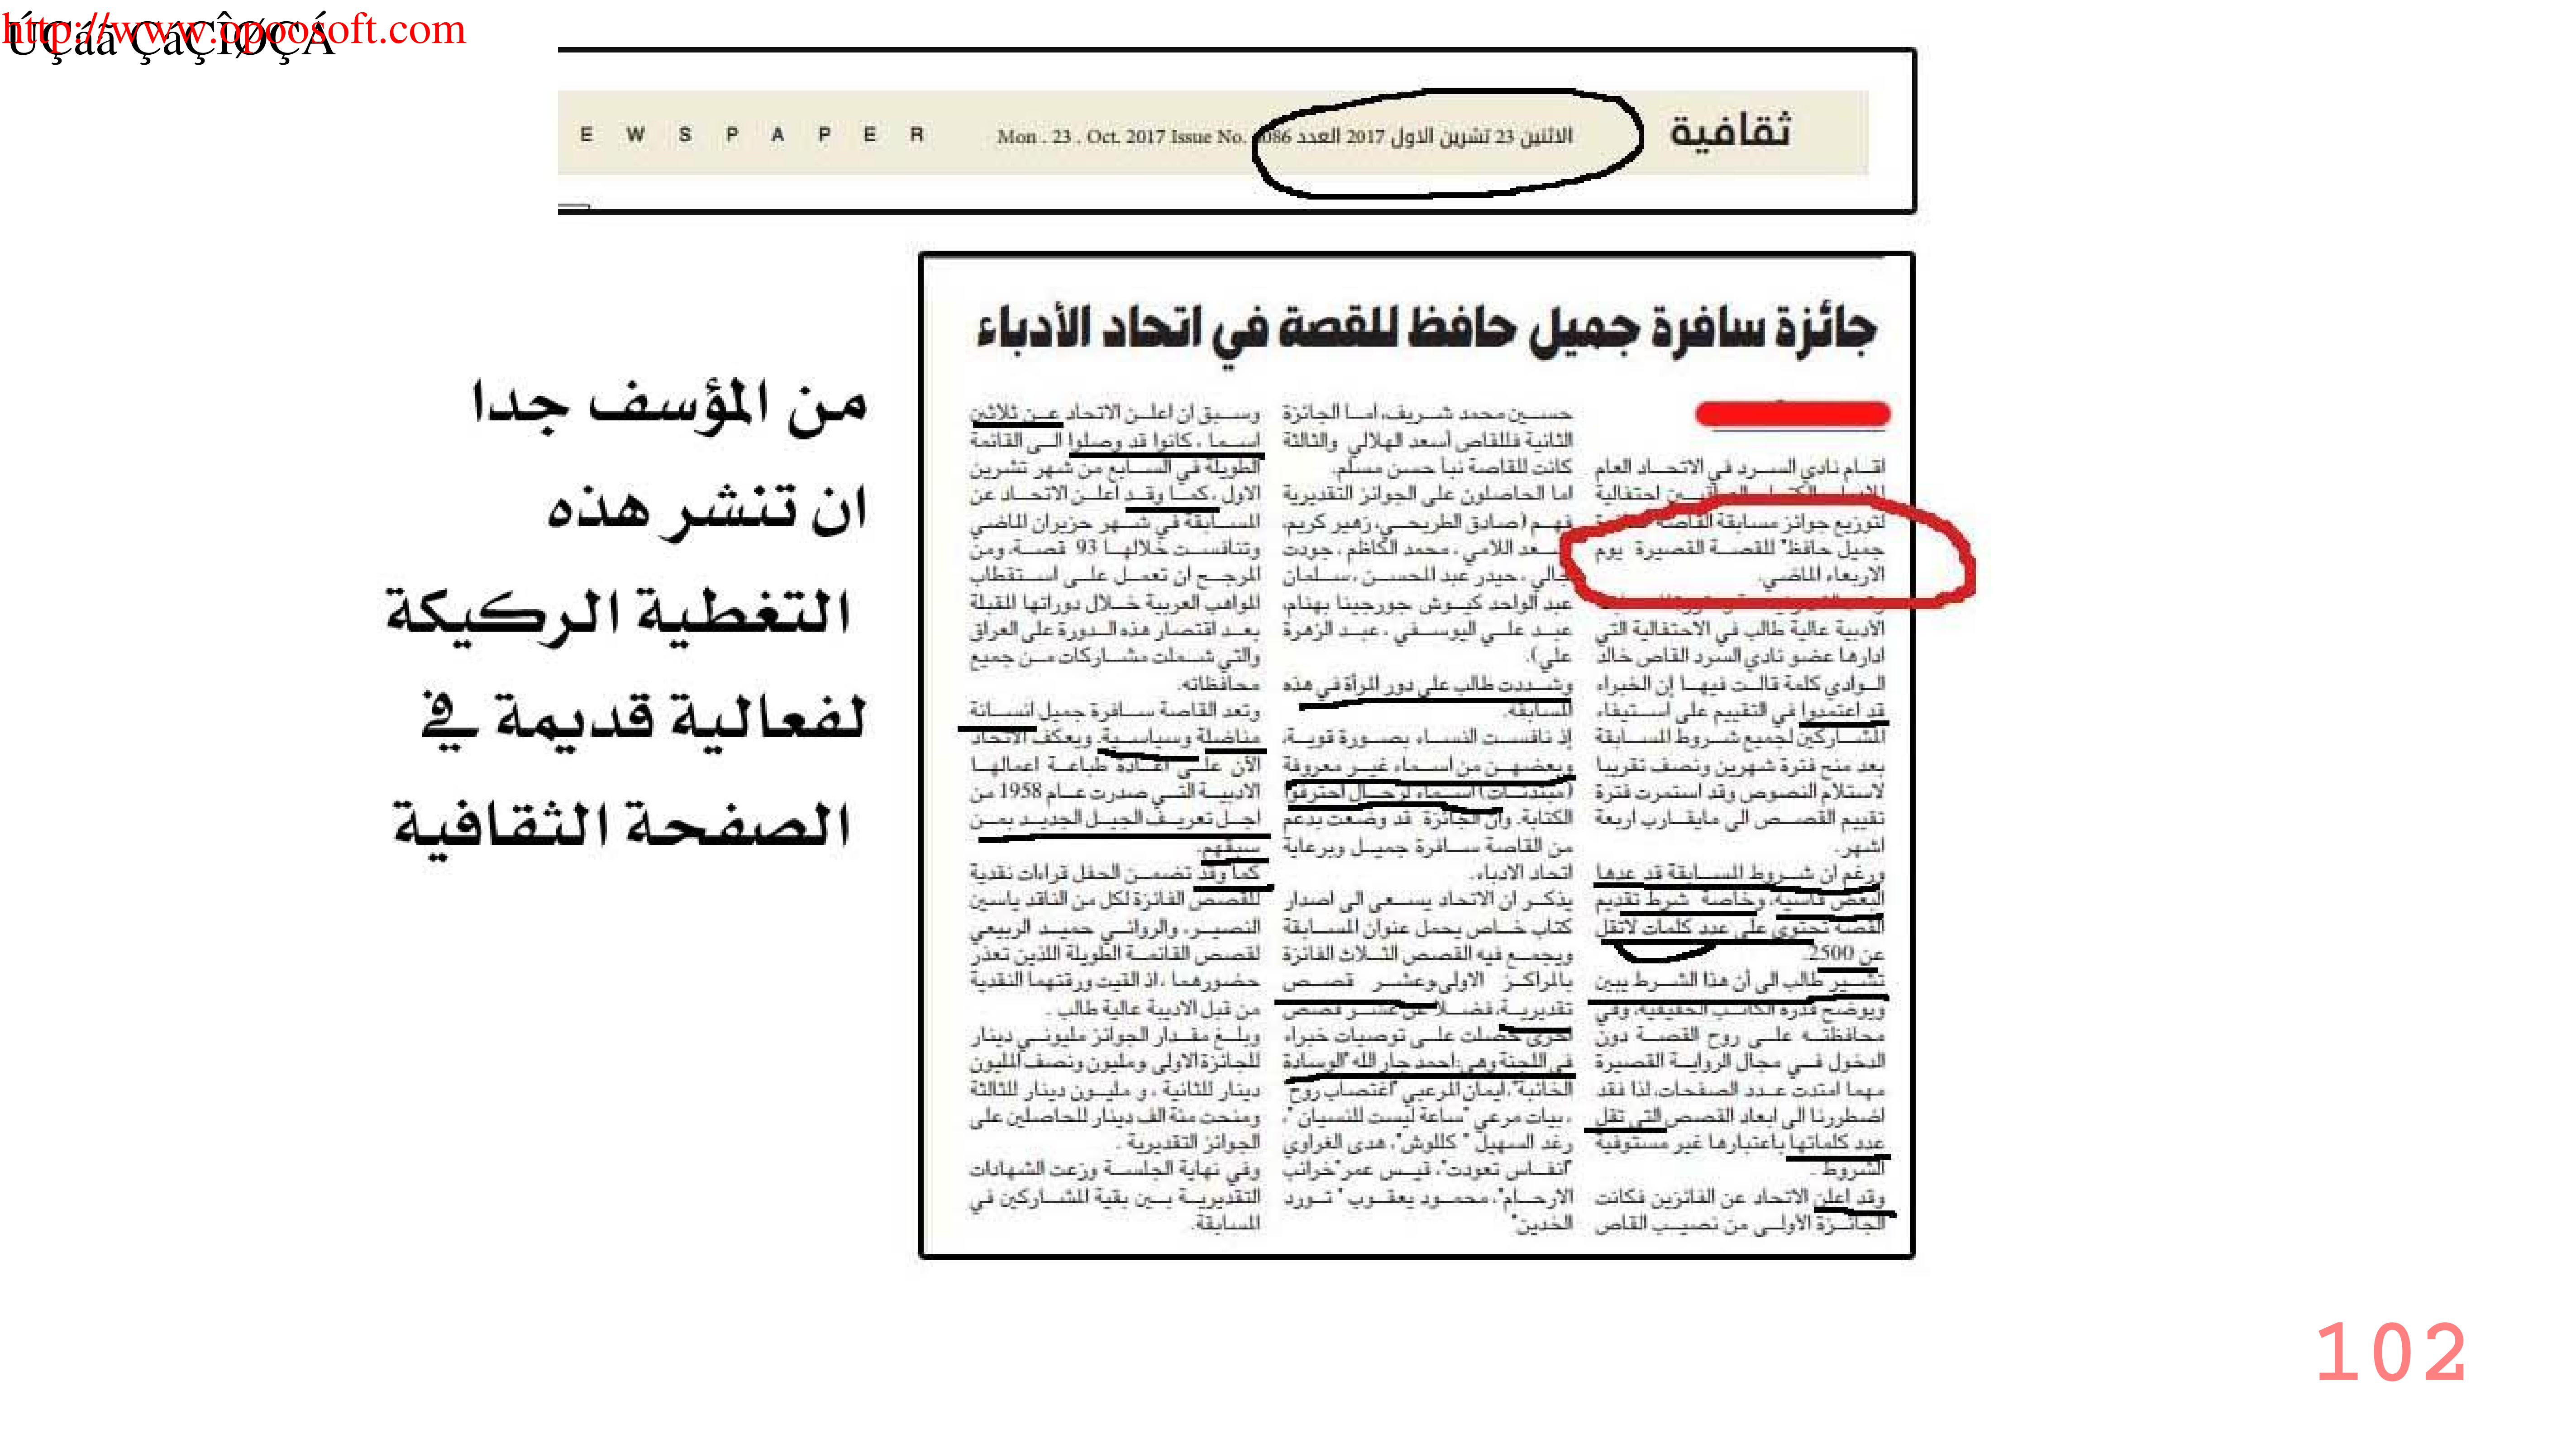 http://www.opoosoft.com
ÚÇáã ÇáÇÎØÇÁ
ثقافية
الاثنين 23 تشرين الاول 2017 العدد 086
Mon . 23 . Oct. 2017 Issue No.
E W S P A P E R
جائزة سافرة جميل حافظ للقصة في اتحاد الأدباء
من المؤسف جدا
ان تنشر هذه
التغطية الركيكة
لفعالية قديمة في
الصفحة الثقافية
اقام نادي السرد في الاتحاد العام
احتفالية
لتوزيع جوائز مسابقة القاصة
جميل حافظ" للقصة القصيرة يوم
الاربعاء الماضي.
الأدبية عالية طالب في الاحتفالية التي
ادارها عضو نادي السرد القاص خالد
الوادي كلمة قالت فيها إن الخبراء
قد اعتمدوا في التقييم على استيفاء
المشاركين لجميع شروط المسابقة
بعد منح فترة شهرين ونصف تقريبا
لاستلام النصوص وقد استمرت فترة
تقييم القصص الى مايقارب اربعة
اشهر.
ورغم ان شروط المسابقة قد عدها
البعض قاسية، وخاصة شرط تقديم
القصة تحتوي على عدد كلمات لاتقل
عن 2500.
تشير طالب الى أن هذا الشرط يبين
ويوضح قدرة الكاتب الحقيقية، وفي
محافظته على روح القصة دون
الدخول في مجال الرواية القصيرة
مهما امتدت عدد الصفحات، لذا فقد
اضطررنا الى ابعاد القصص التي تقل
عدد كلماتها باعتبارها غير مستوفية
الشروط .
وقد اعلن الاتحاد عن الفائزين فكانت
الجائزة الأولى من نصيب القاص
حسين محمد شريف، اما الجائزة
الثانية فللقاص أسعد الهلالي والثالثة
كانت للقاصة نبأ حسن مسلم.
اما الحاصلون على الجوائز التقديرية
فهم (صادق الطريحي، زهير كريم،
سعد اللامي ، محمد الكاظم ، جودت
جالي ، حيدر عبد المحسن ، سلمان
عبد الواحد كيوش جورجينا بهنام،
عبد علي اليوسفي ، عبد الزهرة
علي).
وشددت طالب على دور المرأة في هذه
المسابقة.
إذ نافست النساء بصورة قوية،
وبعضهن من اسماء غير معروفة
(مبتدئات) اسماء لرجال احترفوا
الكتابة. وان الجائزة قد وضعت بدعم
من القاصة سافرة جميل وبرعاية
اتحاد الادباء.
يذكر ان الاتحاد يسعى الى اصدار
كتاب خاص يحمل عنوان المسابقة
ويجمع فيه القصص الثلاث الفائزة
بالمراكز الاولى وعشر قصص
تقديرية، فضلا عن عشر قصص
اخرى حصلت على توصيات خبراء
في اللجنة وهي: احمد جار الله "الوسادة
الخائبة"، ايمان المرعبي "اغتصاب روح"
، بيات مرعي "ساعة ليست للنسيان"،
رغد السهيل " كللوش"، هدى الغراوي
"انفاس تعودت"، قيس عمر "خرائب
الارحام"، محمود يعقوب " تورد
الخدين"
وسبق ان اعلن الاتحاد عن ثلاثين
اسما ، كانوا قد وصلوا الى القائمة
الطويلة في السابع من شهر تشرين
الاول ، كما وقد اعلن الاتحاد عن
المسابقة في شهر حزيران الماضي
وتنافست خلالها 93 قصة، ومن
المرجح ان تعمل على استقطاب
المواهب العربية خلال دوراتها المقبلة
بعد اقتصار هذه الدورة على العراق
والتي شملت مشاركات من جميع
محافظاته.
وتعد القاصة سافرة جميل انسانة
مناضلة وسياسية. ويعكف الاتحاد
الآن على اعادة طباعة اعمالها
الادبية التي صدرت عام 1958 من
اجل تعريف الجيل الجديد بمن
سبقهم.
كما وقد تضمن الحفل قراءات نقدية
للقصص الفائزة لكل من الناقد ياسين
النصير، والروائي حميد الربيعي
لقصص القائمة الطويلة اللذين تعذر
حضورهما ، اذ القيت ورقتهما النقدية
من قبل الاديبة عالية طالب .
وبلغ مقدار الجوائز مليوني دينار
للجائزة الاولى ومليون ونصف المليون
دينار للثانية ، و مليون دينار للثالثة
ومنحت مئة الف دينار للحاصلين على
الجوائز التقديرية .
وفي نهاية الجلسة وزعت الشهادات
التقديرية بين بقية المشاركين في
المسابقة.
102